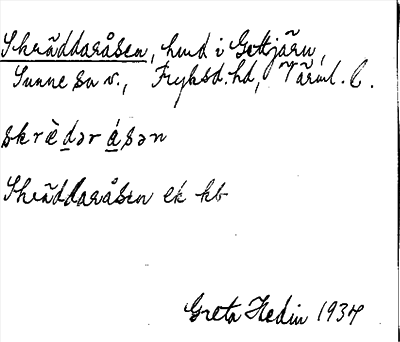 Skräddaråsen, hmd i Gettjärn,
Sunne sn v., Fryksd. hd, Värml. l.
skrὲdər ásən
Skräddaråsen ek kb
Greta Hedin 1934